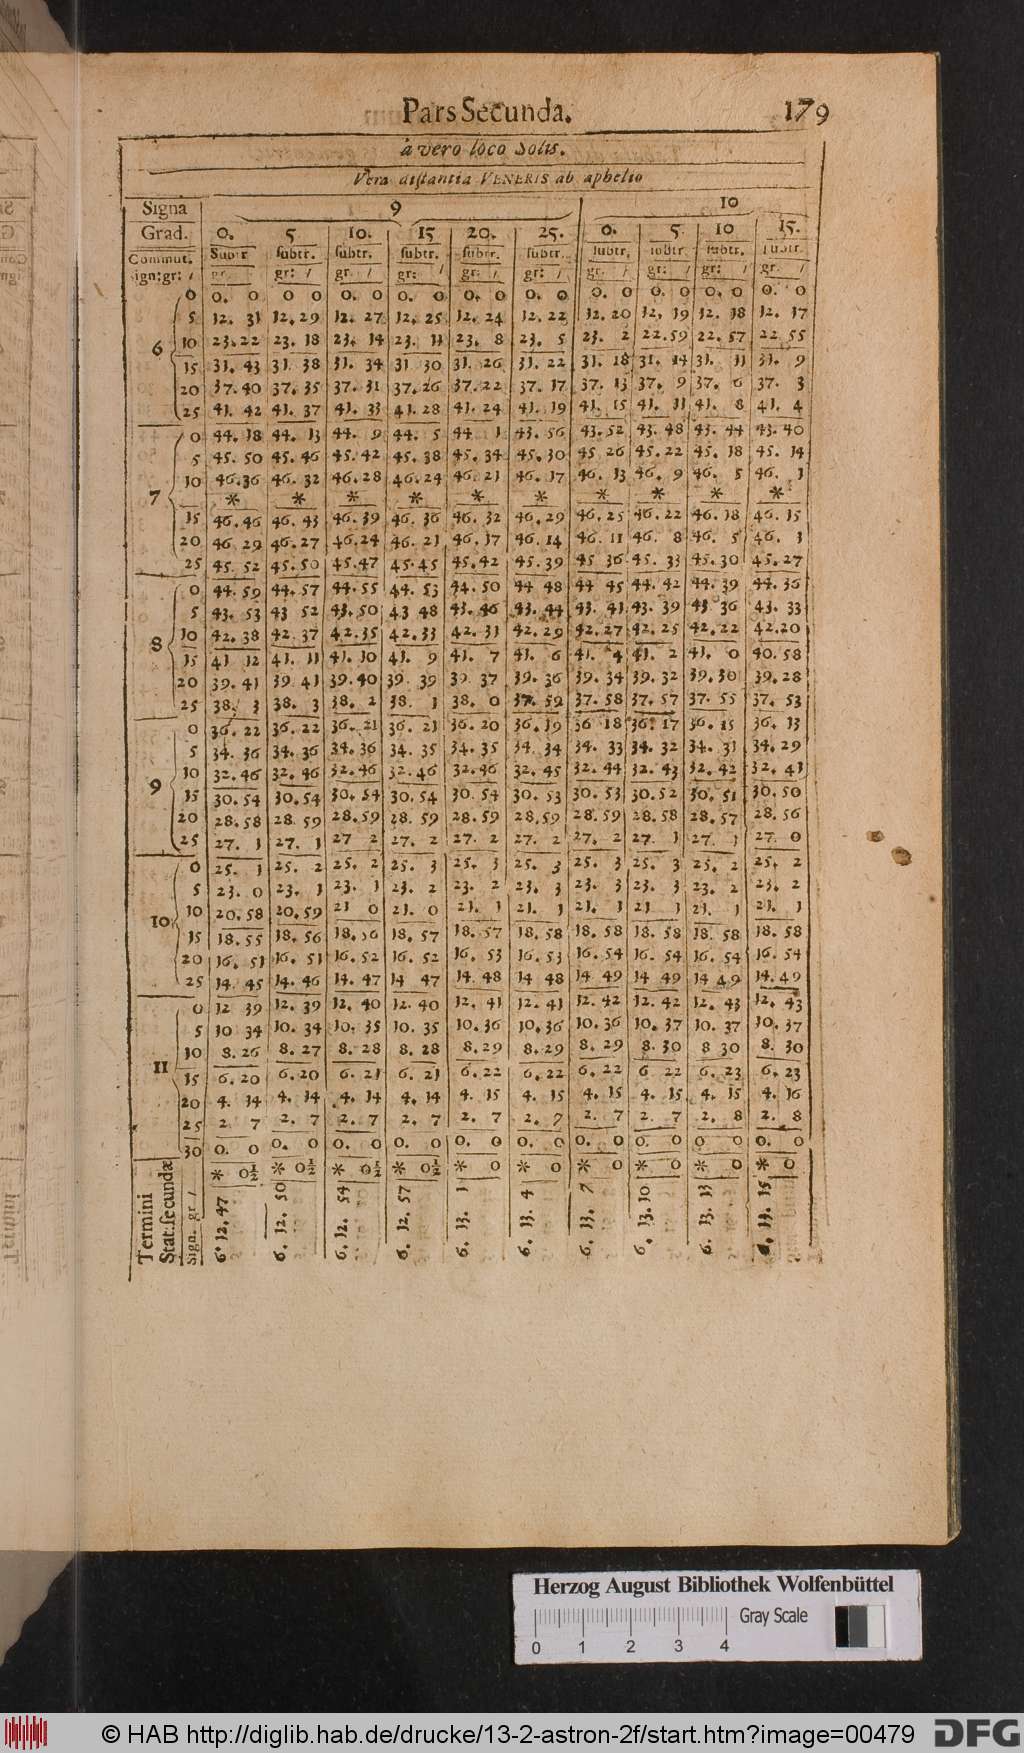 Pars Secunda. 179
à vero loco Solis.
Vera distantia VENERIS ab aphelio
Signa 9 10
Grad. 0. 5 10. 15 20. 25. 0. 5 10 15.
Commut. Subtr subtr. subtr. subtr. subtr. subtr. subtr. subtr subtr. subtr.
sign:gr: / gr. gr: / gr. / gr: / gr: / gr: / gr. / gr: / gr: / gr. /
6 0 0. 0 0 0 0. 0 0. 0 0. 0 0. 0 0. 0 0. 0 0. 0 0. 0
5 12. 31 12. 29 12. 27 12. 25 12. 24 12. 22 12. 20 12, 19 12. 18 12. 17
10 23.22 23. 18 23. 14 23. 11 23. 8 23. 5 23. 2 22.59 22. 57 22 55
15 31. 43 31. 38 31. 34 31 30 31. 26 31. 22 31. 18 31. 14 31. 11 31. 9
20 37.40 37. 35 37. 31 37.26 37.22 37. 17 37. 13 37. 9 37. 6 37. 3
25 41. 42 41. 37 41. 33 41.28 41. 24 41. 19 41. 15 41. 11 41. 8 41. 4
7 0 44. 18 44. 13 44. 9 44. 5 44 1 43. 56 43.52 43. 48 43. 44 43. 40
5 45. 50 45. 46 45. 42 45. 38 45. 34 45. 30 45 26 45.22 45. 18 45. 14
10 46.36 46. 32 46.28 46.24 46. 21 46. 17 46. 13 46. 9 46. 5 46. 1
* * * * * * * * * *
15 46.46 46. 43 46.39 46. 36 46. 32 46.29 46.25 46.22 46.18 46.15
20 46 29 46.27 46.24 46. 21 46.17 46. 14 46. 11 46. 8 46. 5 46. 3
25 45. 52 45.50 45.47 45.45 45.42 45.39 45 36 45. 33 45.30 45.27
8 0 44. 59 44.57 44.55 44. 53 44. 50 44 48 44 45 44. 42 44. 39 44. 36
5 43. 53 43 52 43. 50 43 48 43. 46 43. 44 43. 41 43. 39 43 36 43. 33
10 42. 38 42. 37 42.35 42. 33 42. 31 42. 29 42.27 42. 25 42.22 42.20
15 41 12 41. 11 41. 10 41. 9 41. 7 41. 6 41. 4 41. 2 41. 0 40. 58
20 39. 41 39 41 39.40 39 39 39. 37 39. 36 39. 34 39. 32 39.30 39.28
25 38. 3 38. 3 38. 2 38. 1 38. 0 37. 59 37. 58 37. 57 37. 55 37. 53
9 0 36. 22 36. 22 36. 21 36. 21 36. 20 36. 19 36 18 36. 17 36. 15 36. 13
5 34. 36 34. 36 34. 36 34. 35 34. 35 34 34 34. 33 34. 32 34. 31 34. 29
10 32.46 32. 46 32.46 32.46 32.46 32. 45 32. 44 32. 43 32. 42 32. 41
15 30. 54 30. 54 30. 54 30. 54 30 54 30. 53 30. 53 30.52 30. 51 30. 50
20 28. 58 28 59 28. 59 28. 59 28. 59 28.59 28. 59 28. 58 28. 57 28. 56
25 27. 1 27. 1 27 2 27. 2 27. 2 27. 2 27. 2 27. 1 27. 1 27. 0
10 0 25. 1 25. 2 25. 2 25. 3 25. 3 25. 3 25. 3 25. 3 25. 2 25. 2
5 23. 0 23. 1 23. 1 23. 2 23. 2 23. 3 23. 3 23. 3 23. 2 23. 2
10 20. 58 20. 59 21 0 21. 0 21. 1 21. 1 21. 1 21 1 21. 1 21. 1
15 18. 55 18. 56 18. 56 18. 57 18. 57 18. 58 18. 58 18. 58 18. 58 18. 58
20 16. 51 16. 51 16. 52 16. 52 16. 53 16. 53 16. 54 16. 54 16. 54 16. 54
25 14. 45 14. 46 14. 47 14 47 14. 48 14 48 14 49 14 49 14 49 14. 49
11 0 12 39 12. 39 12. 40 12. 40 12. 41 12. 41 12. 42 12. 42 12. 43 12. 43
5 10 34 10. 34 10. 35 10. 35 10. 36 10. 36 10. 36 10. 37 10. 37 10. 37
10 8. 26 8. 27 8. 28 8. 28 8. 29 8. 29 8. 29 8. 30 8 30 8. 30
15 6. 20 6. 20 6. 21 6. 21 6. 22 6. 22 6. 22 6 22 6. 23 6. 23
20 4. 14 4. 14 4. 14 4. 14 4. 15 4. 15 4. 15 4. 15 4. 15 4. 16
25 2 7 2. 7 2. 7 2. 7 2. 7 2. 7 2. 7 2. 7 2. 8 2. 8
30 0. 0 0. 0 0. 0 0. 0 0. 0 0. 0 0. 0 0. 0 0 0 0. 0
* 0½ * 0½ * 0½ * 0½ * 0 * 0 * 0 * 0 * 0 * 0
Termini
Stat: secundæ
Sign. gr. / 6. 12. 47 6. 12. 50 6. 12. 54 6. 12. 57 6. 13. 1 6. 13. 4 6. 13. 7 6. 13. 10 6. 13. 13 6. 13. 15
Herzog August Bibliothek Wolfenbüttel
Gray Scale
0 1 2 3 4
© HAB http://diglib.hab.de/drucke/13-2-astron-2f/start.htm?image=00479 DFG